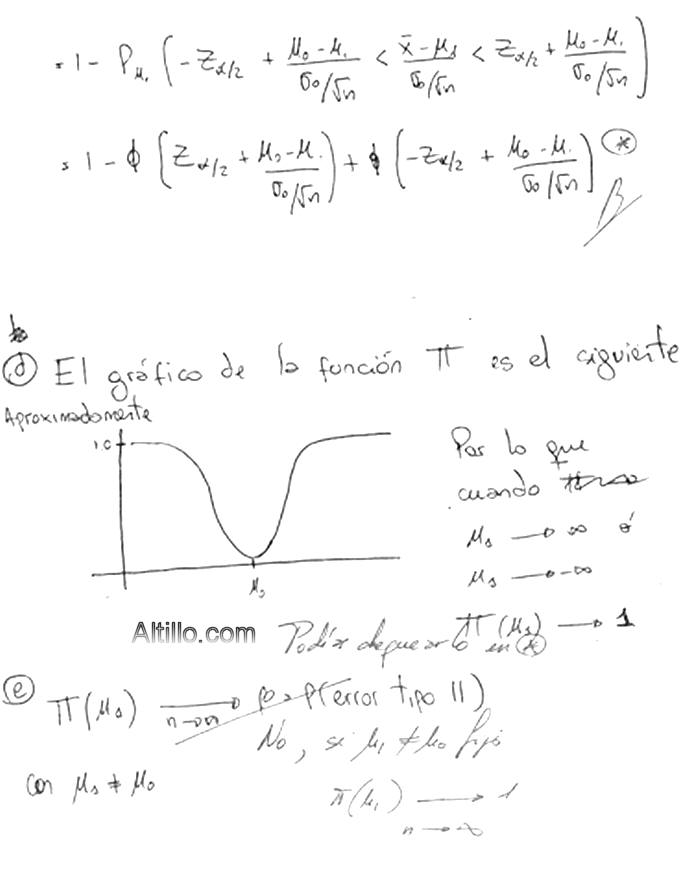 = 1 - P_{μ₁} ( -Z_{α/2} + (μ₀ - μ₁)/(σ₀/√n) < (x̄ - μ₁)/(σ₀/√n) < Z_{α/2} + (μ₀ - μ₁)/(σ₀/√n) )
= 1 - Φ ( Z_{α/2} + (μ₀ - μ₁)/(σ₀/√n) ) + Φ ( -Z_{α/2} + (μ₀ - μ₁)/(σ₀/√n) ) (*)
B
(d) El gráfico de la función Π es el siguiente
Aproximadamente
1.0
Por lo que
cuando
μ₁ → ∞ ó
μ₁ → -∞
Π(μ₁) → 1
μ₀
Altillo.com
Podías chequearlo en (*)
(e) Π(μ₁) → n→∞ P(error tipo II)
No, si μ₁ ≠ μ₀ fijo
con μ₁ ≠ μ₀
π(μ₁) → 1
n → ∞